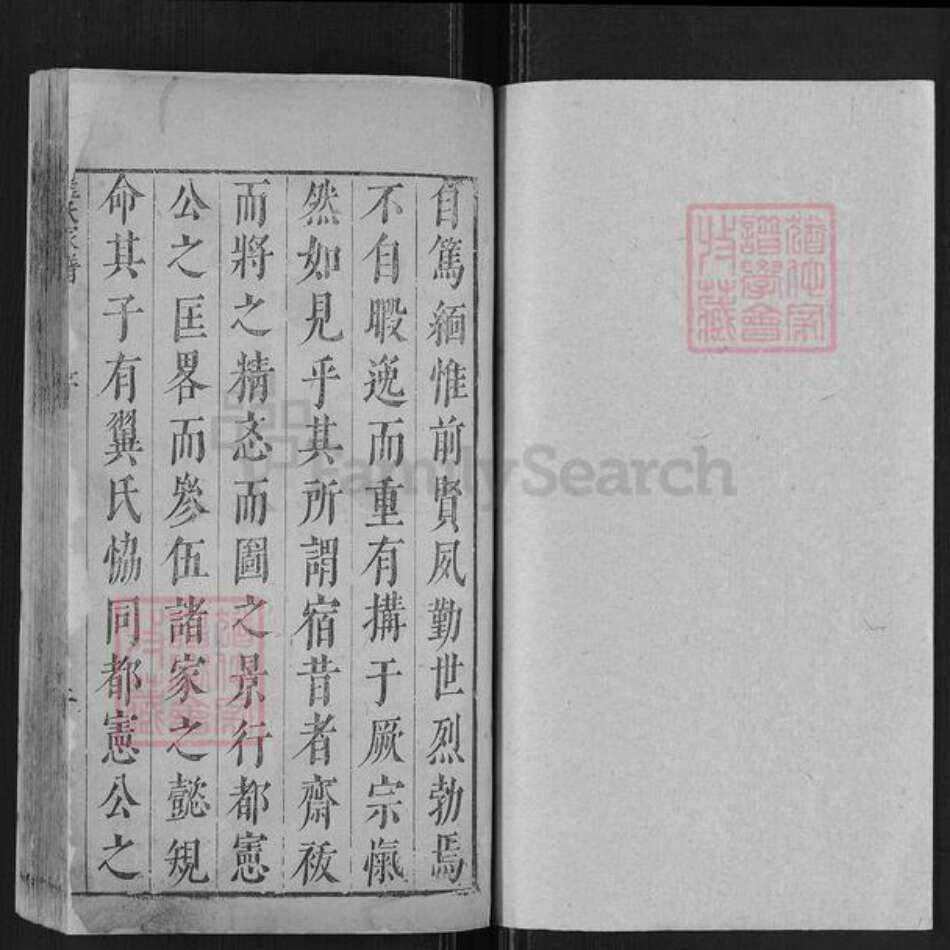 自篤緬惟前賢夙勤世烈勃焉
不自暇逸而重有搆于厥宗愾
然如見乎其所謂宿昔者齋祓
而將之精忞而圖之景行都憲
公之匡畧而參伍諸家之懿規
命其子有翼氏恊同都憲公之
氏家譜
序
FamilySearch
譜學會
收藏